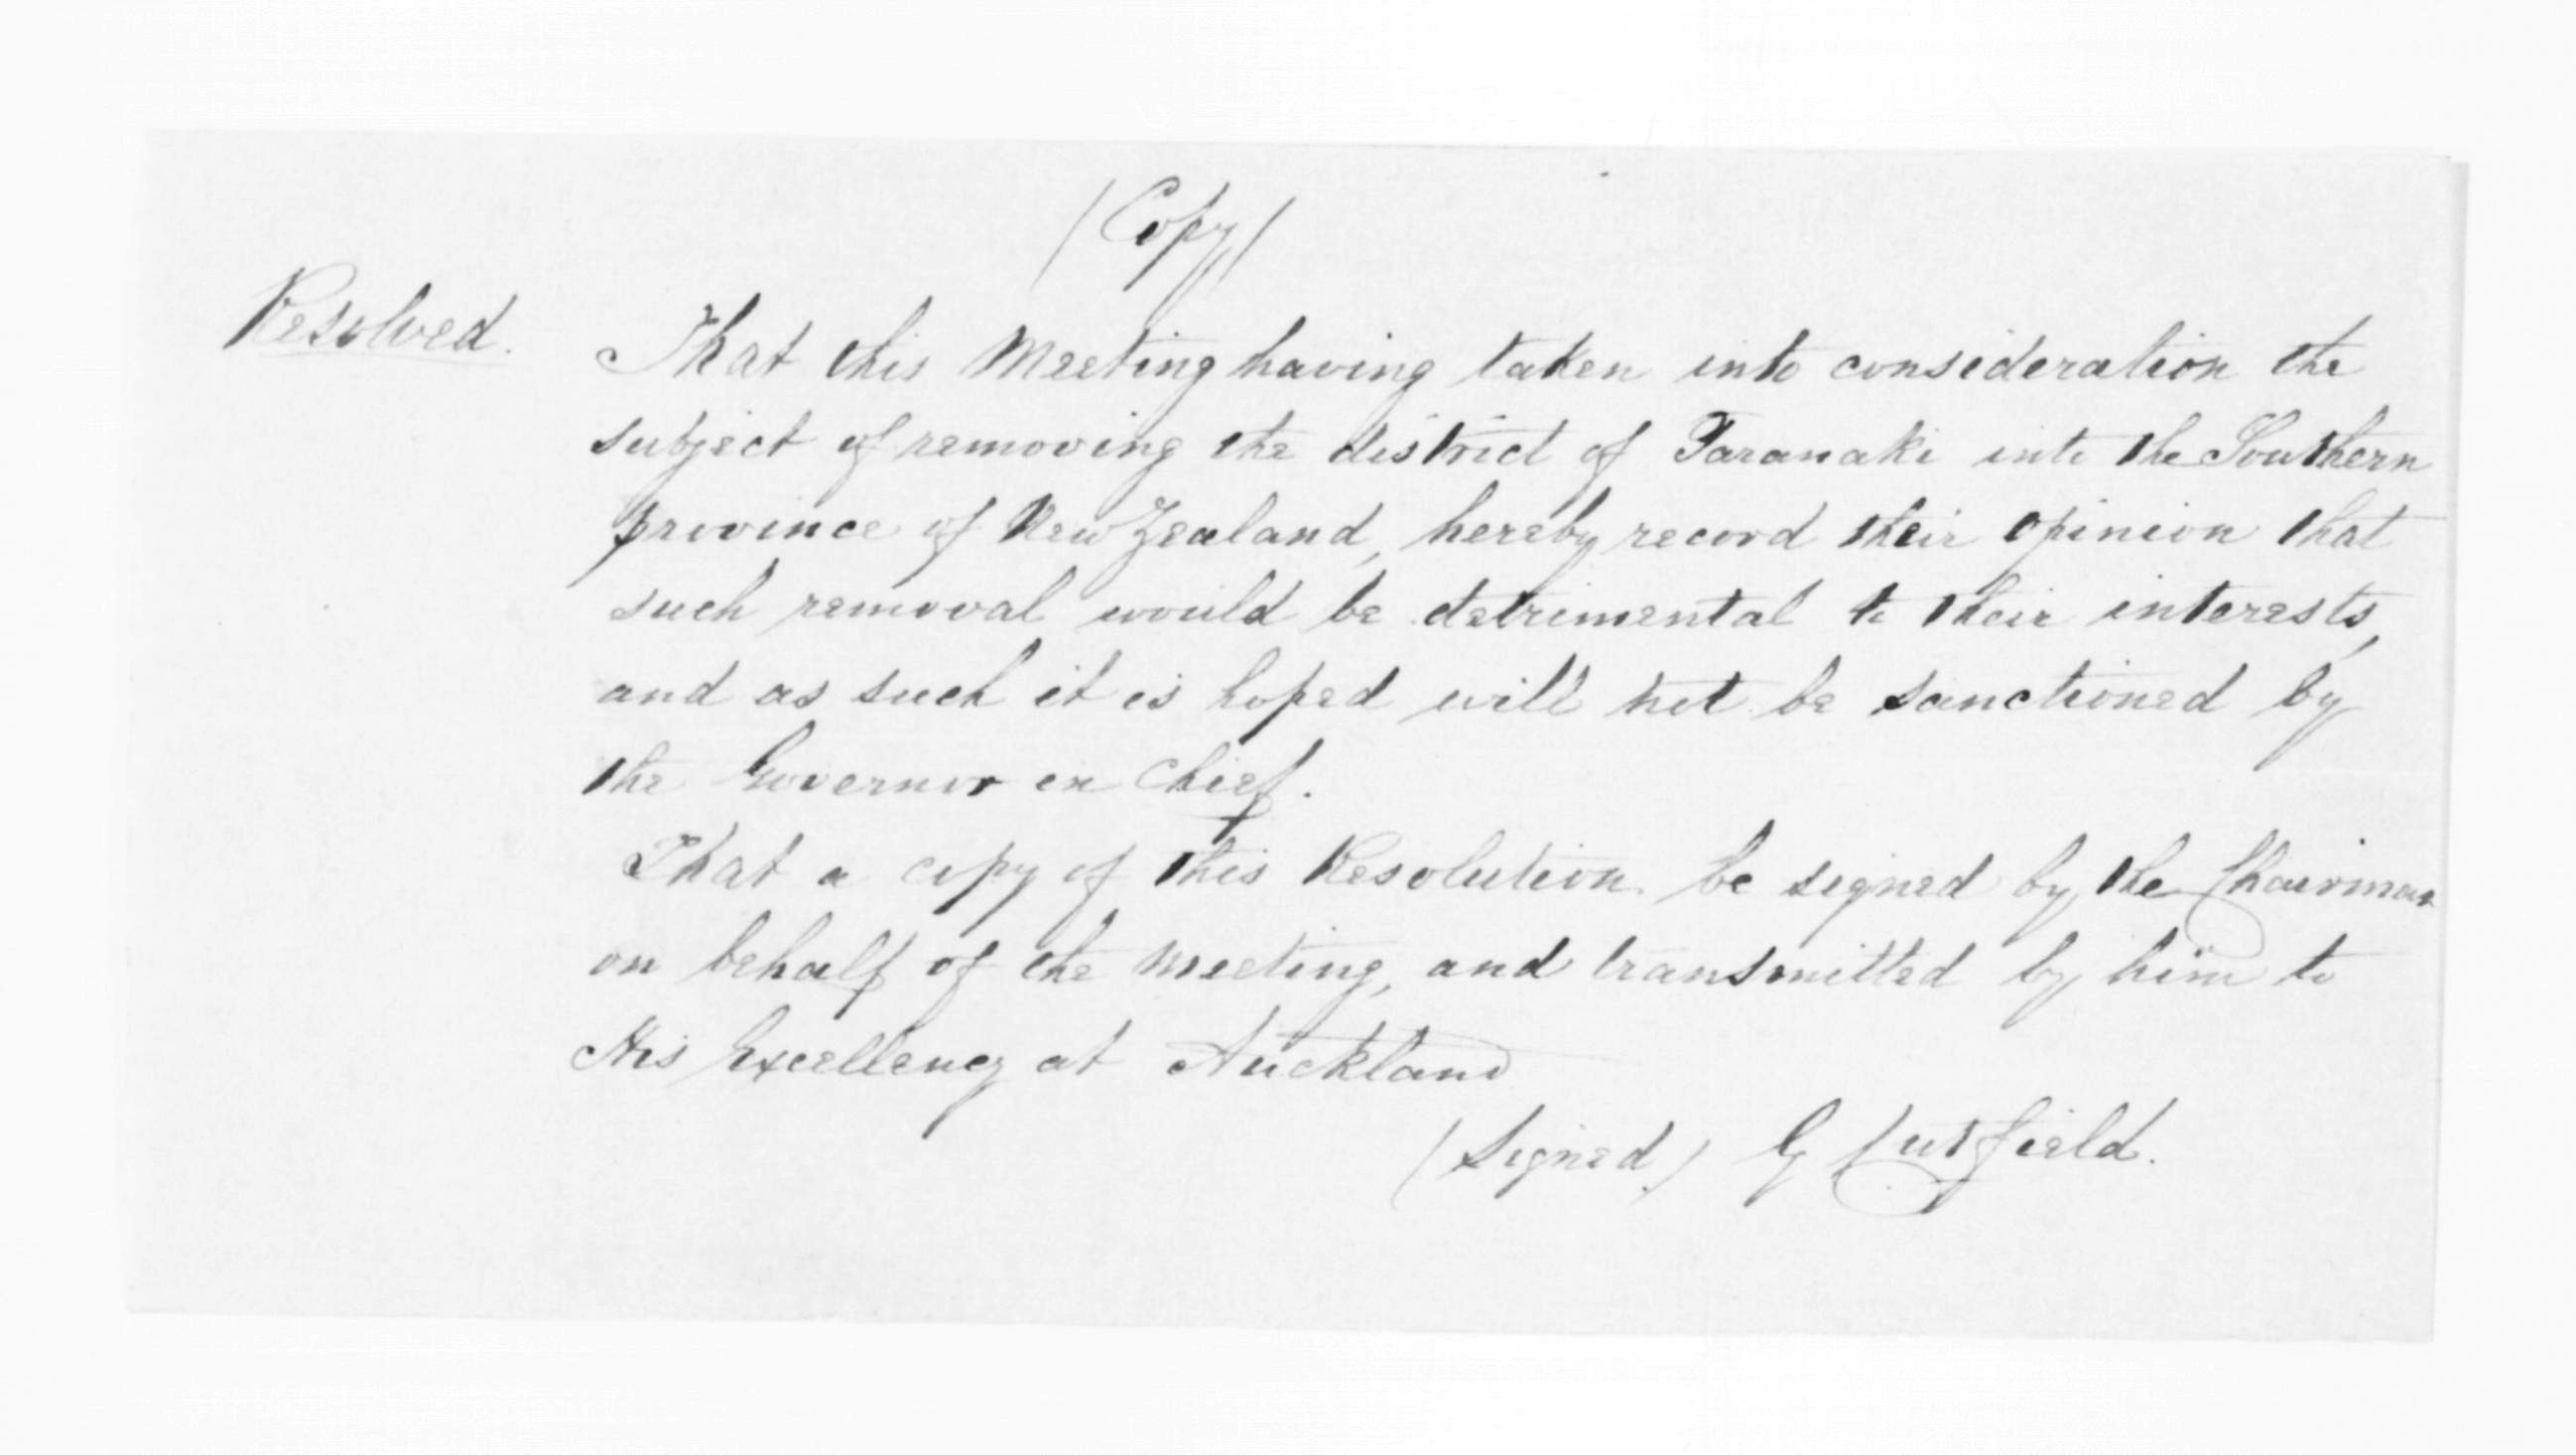 (Copy)
Resolved. That this Meeting having taken into consideration the
subject of removing the district of Taranaki into the Southern
province of New Zealand, hereby record their opinion that
such removal would be detrimental to their interests,
and as such it is hoped will not be sanctioned by
the Governor in Chief.
That a copy of this Resolution be signed by the Chairman
on behalf of the meeting, and transmitted by him to
His Excellency at Auckland
(Signed) G Cutfield.